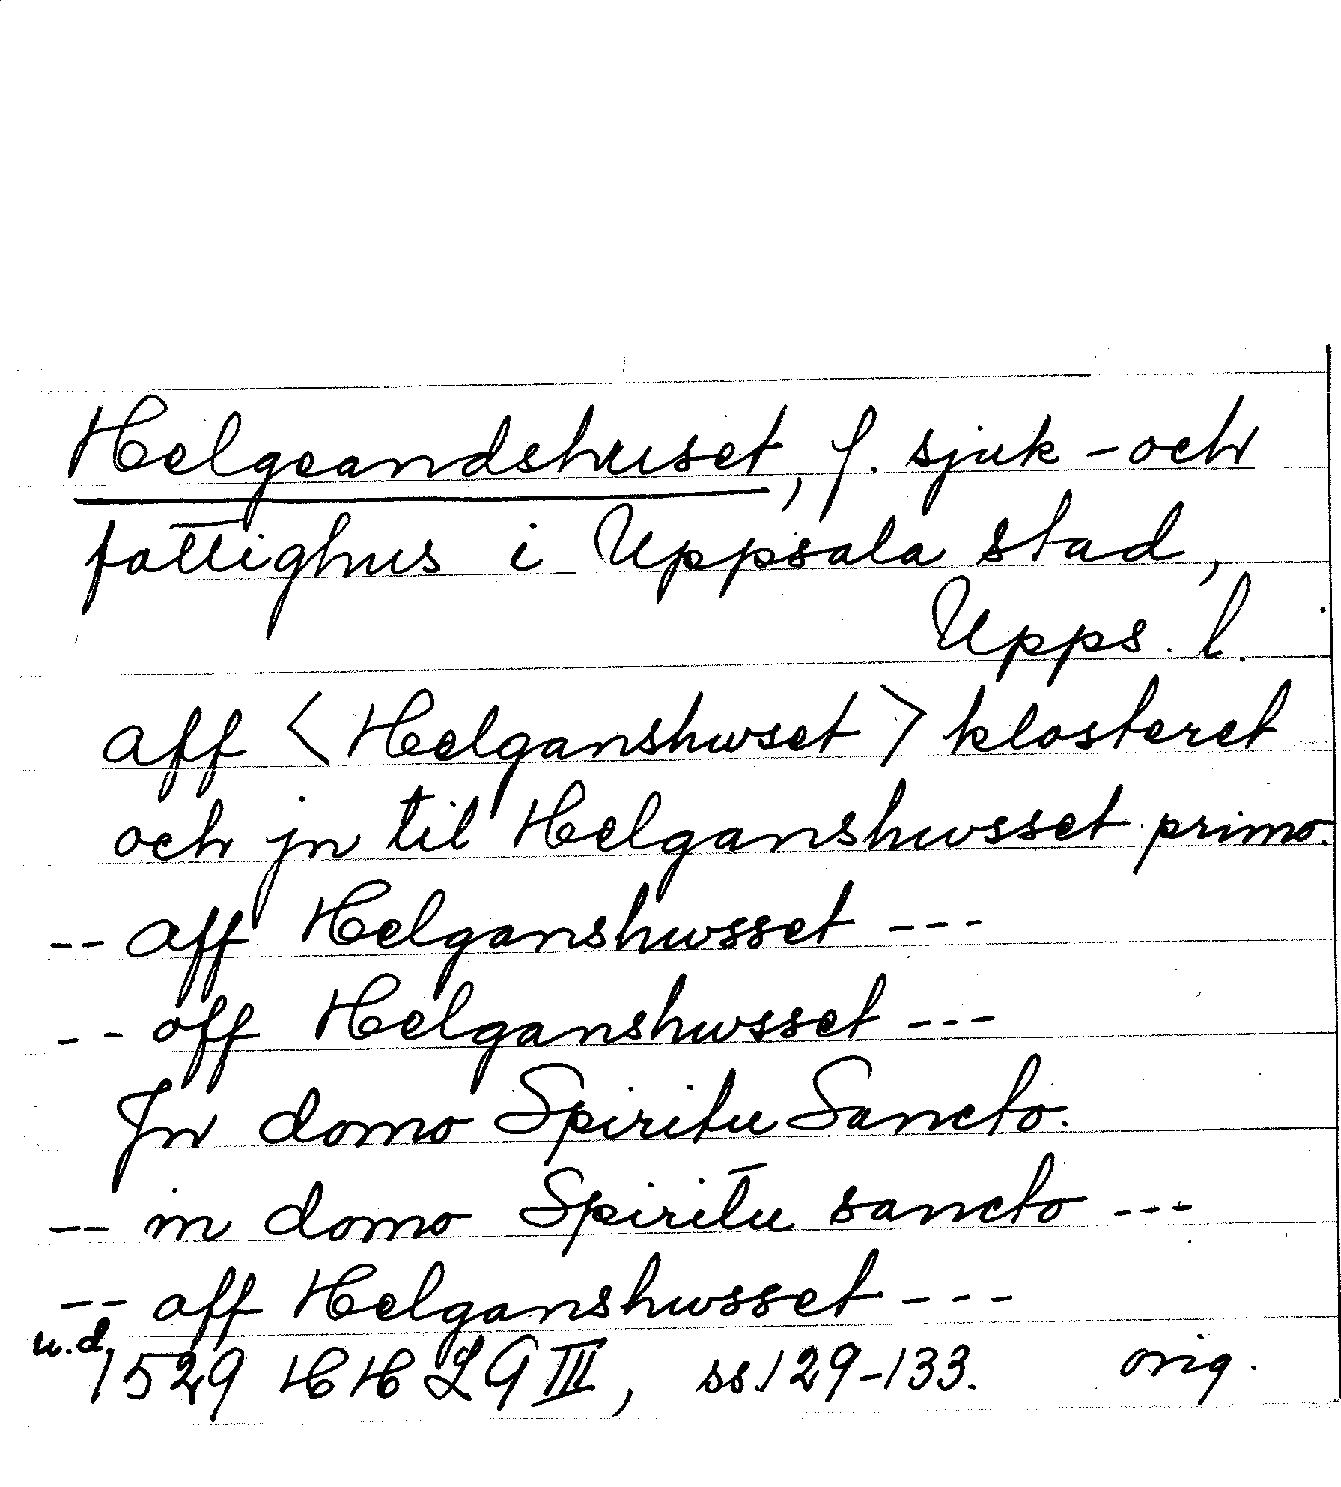 Helgeandshuset, f. sjuk- och
fattighus i Uppsala stad,
Upps. l.
aff <Helganshwset> klosteret
och jn til Helganshwsset primo.
-- aff Helganshwsset ---
-- aff Helganshwsset ---
Jn domo Spiritu Sancto.
-- in domo Spiritu sancto ---
-- aff Helganshwsset ---
u.d. 1529 HH LG III, ss. 129-133. orig.